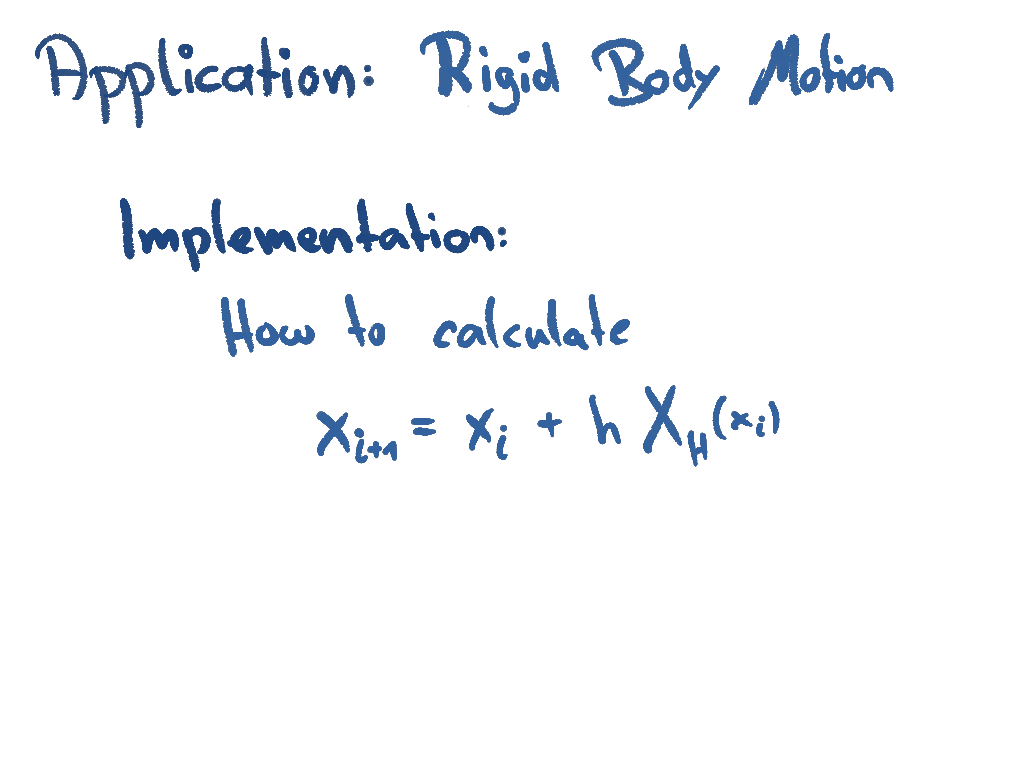 Application: Rigid Body Motion
Implementation:
How to calculate
x_{i+1} = x_i + h X_H(x_i)